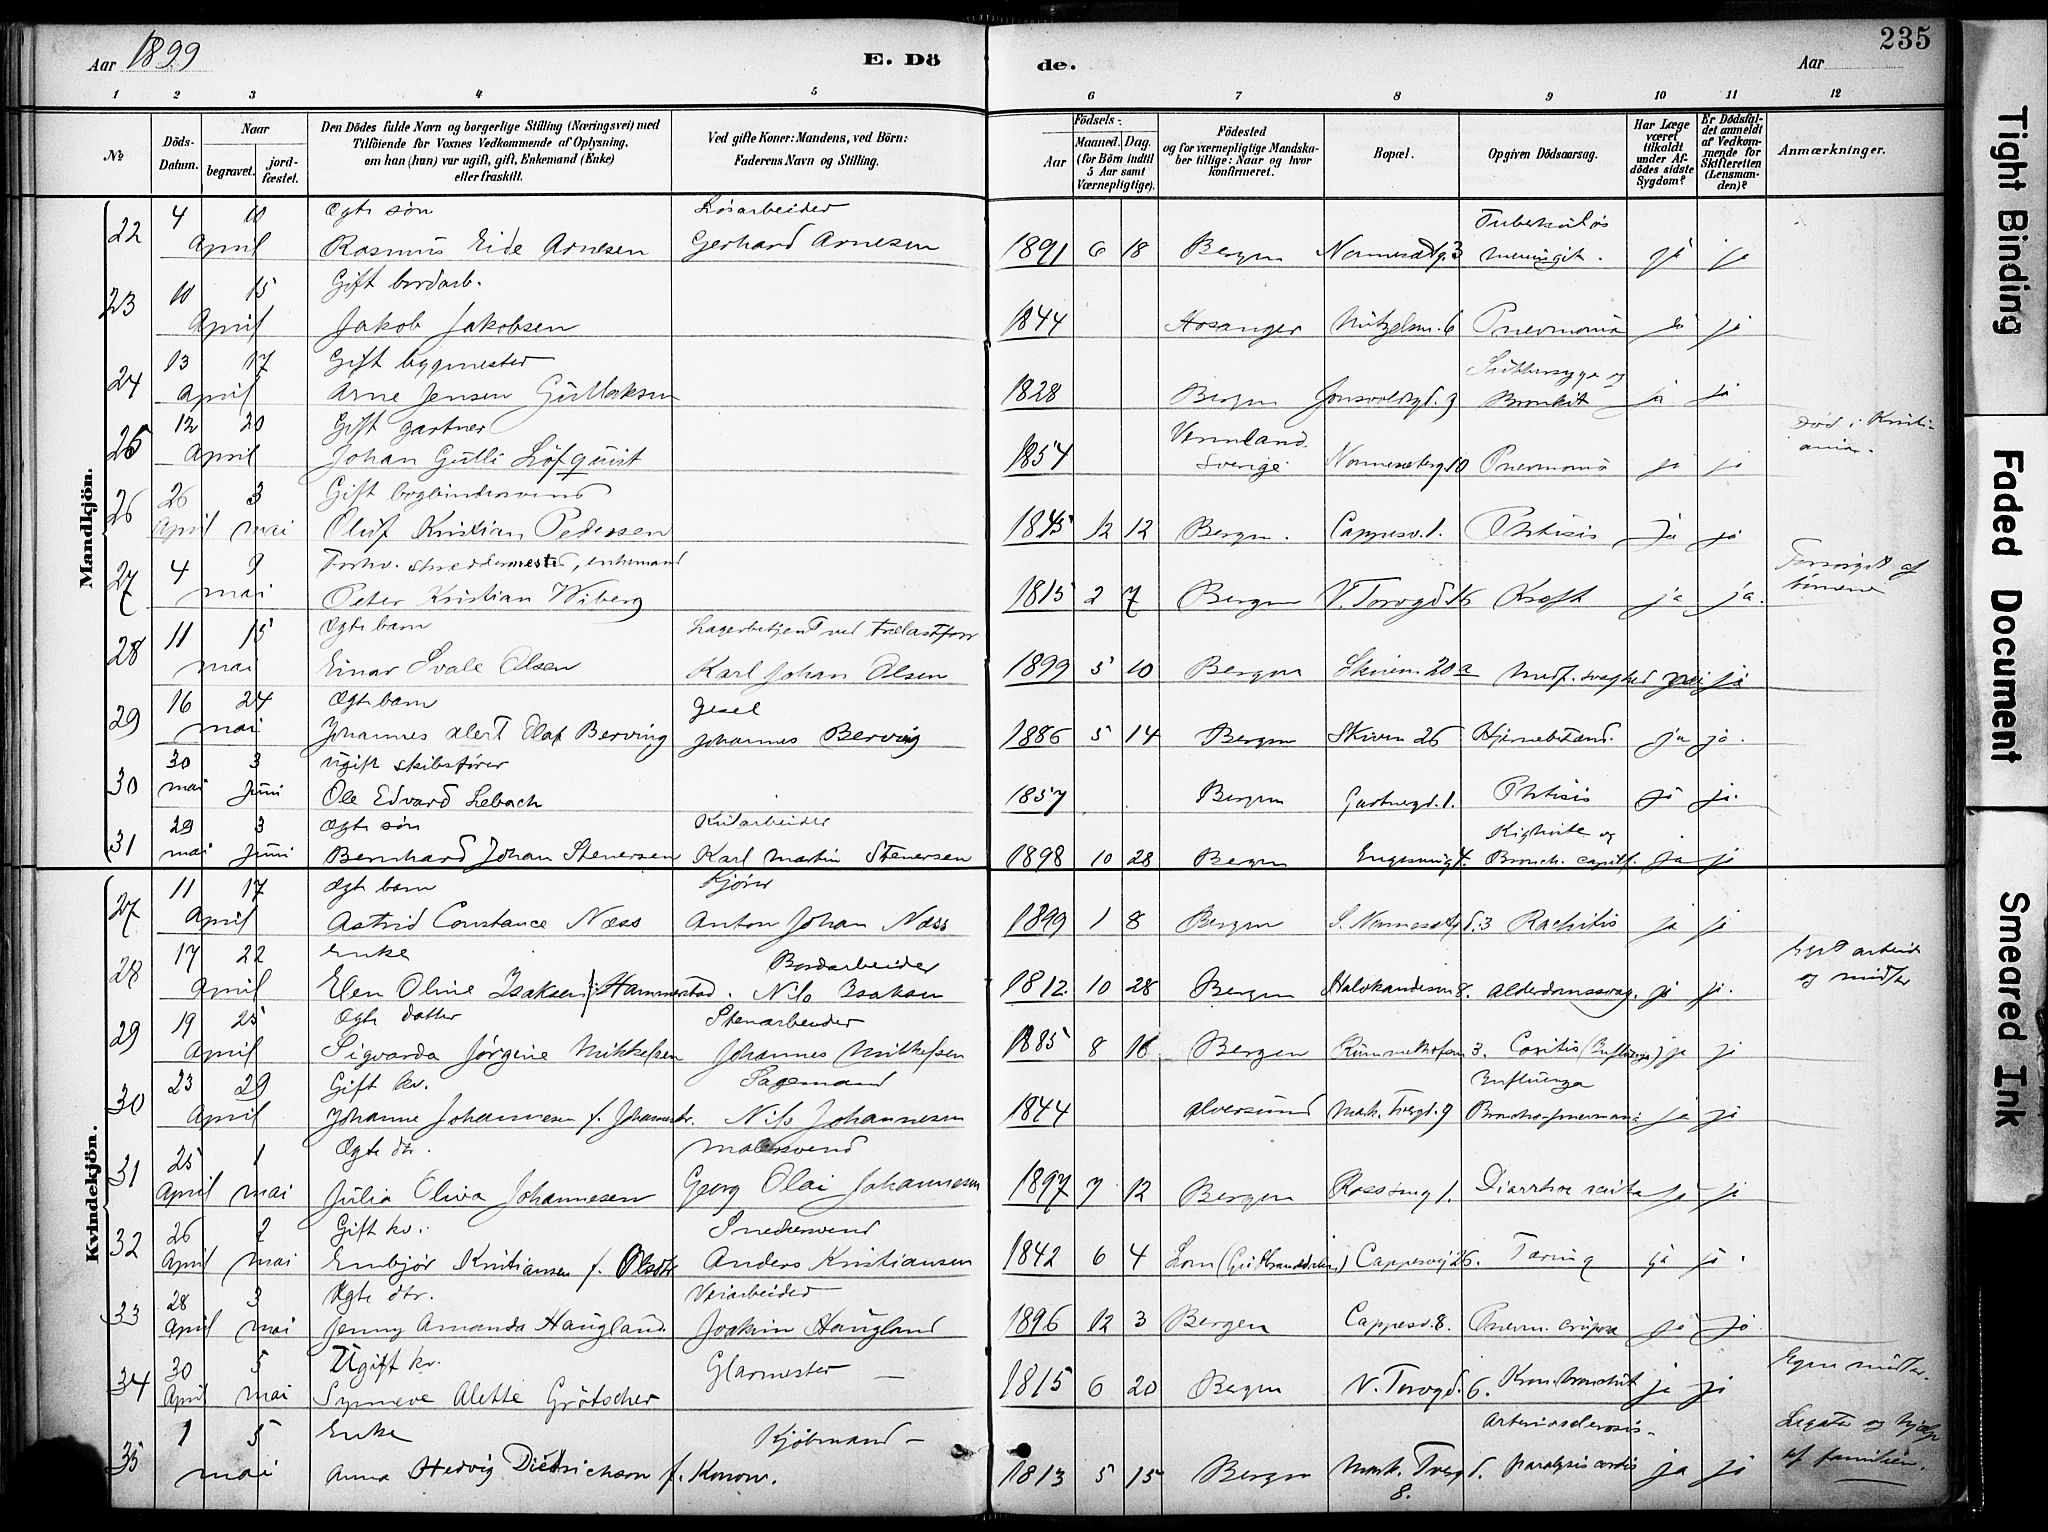 Aar 1899 E. Dö de. Aar 235
1 2 3 4 5 6 7 8 9 10 11 12
№ Döds-Datum. Naar begravet. jordfæstet. Den Dödes fulde Navn og borgerlige Stilling (Næringsvei) med Tilföiende for Voxnes Vedkommende af Oplysning, om han (hun) var ugift, gift, Enkemand (Enke) eller fraskilt. Ved gifte Koner: Mandens, ved Börn: Faderens Navn og Stilling. Födsels- Aar Maaned. Dag. (for Börn indtil 5 Aar samt Værnepligtige). Födested og for værnepligtige Mandskaber tillige: Naar og hvor konfirmeret. Bopæl. Opgiven Dödsaarsag. Har Læge været tilkaldt under Afdödes sidste Sygdom? Er Dödsfaldet anmeldt af Vedkommende for Skifteretten (Lensmanden)? Anmærkninger.
Mandkjön.
22 4 10 Ægte søn Løsarbeider
April Rasmus Eide Arnesen Gerhard Arnesen 1891 6 18 Bergen ja ja
23 10 15 Gift bordarb.
April Jakob Jakobsen 1844 Hosanger Pneumonia ja ja
24 13 17 Gift bygmester
April Arne Jensen Gullaksen 1828 Bergen Bronkit ja ja
25 12 20 Gift gartner
April Johan Gulli Löfquist 1854 Vermland Sverige Pneumonia ja ja Død i Kristiania.
26 26 3 Gift bogbindersvend
April mai Oluf Kristian Pedersen 1845 12 12 Bergen. Cappesv. 1. Phtisis ja ja
27 4 9 Forhv. skreddermester, enkemand
mai Peter Kristian Wiberg 1815 2 7 Bergen V. Torvgd. 16 Kreft ja ja. Forsørget af børnene
28 11 15 Ægte barn Lagerbetjent ved Trælastforr
mai Einar Svale Olsen Karl Johan Olsen 1899 5 10 Bergen Skiven 20a Medf. svaghed nei ja
29 16 24 Ægte barn Gesel
mai Johannes Alert Olaf Berving Johannes Berving 1886 5 14 Bergen Skiven 26 Hjernebetænd. ja ja.
30 30 3 Ugift skibsfører
mai Juni Ole Edvard Lebach 1857 Bergen Gartnergd. 1. Phtisis ja ja.
31 29 3 Ægte søn Kularbeider Kighoste og
mai Juni Bernhard Johan Stenersen Karl Martin Stenersen 1898 10 28 Bergen Bronch. capill. ja ja
Kvindekjön.
27 11 17 Ægte barn Kjører
April Astrid Constance Næss Anton Johan Næss 1899 1 8 Bergen Rachitis ja ja
28 17 22 Enke Bordarbeider
April Elen Oline Isaksen f. Hammerstad. Nils Isaksen 1812 10 28 Bergen Alderdomssvag. ja ja. Eget arbeide og midler
29 19 25 Ægte datter Stenarbeider
April Sigvarda Jørgine Mikkelsen Johannes Mikkelsen 1885 8 16 Bergen Coxitis (Influenza) ja ja
30 23 29 Gift kv. Sagemand Influenza
April Johanne Johannesen f. Johannesdr. Nils Johannesen 1844 Alversund Mark. Tvergd. 9 Broncho-pneumoni. ja ja
31 25 1 Ægte dtr. Malersvend
April mai Julia Oliva Johannesen Georg Olai Johannesen 1897 7 12 Bergen Diarrhoe acuta ja ja
32 26 2 Gift kv. Snedkersvend
April mai Embjør Kristiansen f. Olsdtr Anders Kristiansen 1842 6 4 Lom (Gudbrandsdalen) Cappesvg 26. Tæring ja ja.
33 28 3 Ægte dtr. Veiarbeider
April mai Jenny Amanda Haugland Joakim Haugland 1896 12 3 Bergen Cappesv. 8. Pneum. cruposa ja ja
34 30 5 Ugift kv. Glarmester —
April mai Synneve Alette Grötscher 1815 6 20 Bergen V. Torvgd. 6. Kron. bronchit ja ja Egne midler.
35 1 5 Enke Kjöbmand — Arteriosclerosis -
mai Anna Hedvig Diedrichson f. Konow. 1813 5 15 Bergen Mark. Tvergd. 8. paralysis cordis ja ja Legater og hjelp af familien.
Tight Binding
Faded Document
Smeared Ink